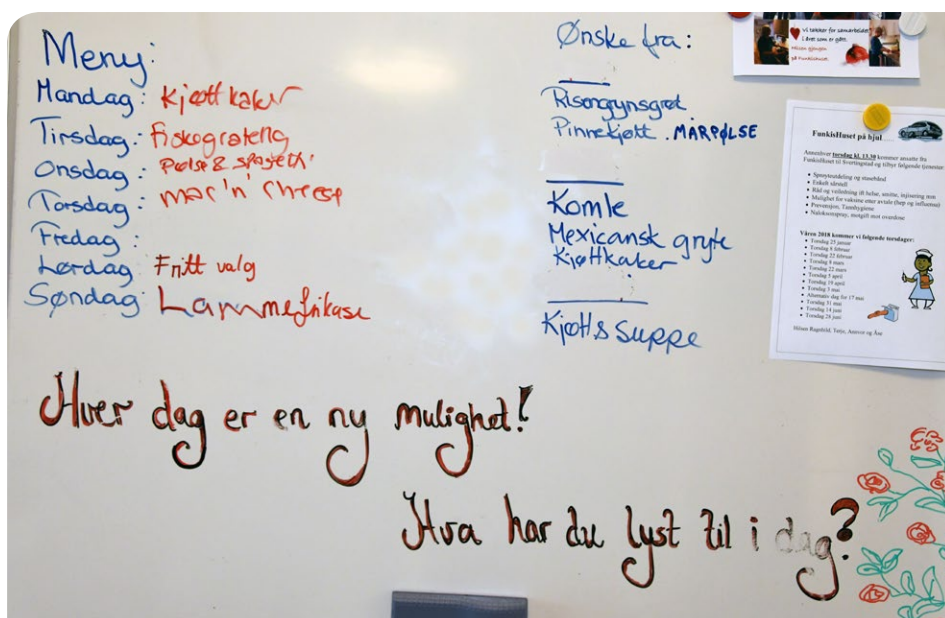 Meny:
Mandag: Kjøttkaker
Tirsdag: Fiskegrateng
Onsdag: Pølse & spagetti
Torsdag: mac 'n' cheese
Fredag:
Lørdag Fritt valg
Søndag: Lammefrikase
Ønske fra:
Risengrynsgrøt
Pinnekjøtt. MARPØLSE
Komle
Mexicansk gryte
Kjøttkaker
Kjøtt & Suppe
Hver dag er en ny mulighet!
Hva har du lyst til i dag?
Vi takker for samarbeidet
i året som er gått.
på FunkisHuset
FunkisHuset på hjul
torsdag kl. 13.30 kommer ansatte fra
FunkisHuset til Svortingstad og tilbyr følgende
Sprøyteutdeling og
Enkelt sårstell
Råd og veiledning ift helse, smitte, injisering mm
Mulighet for vaksine etter avtale (hep og influensa)
Prevensjon, Tannhygiene
Naloksonspray, motgift mot overdose
Våren 2018 kommer vi følgende torsdager:
Torsdag 25 januar
Torsdag 8 februar
Torsdag 22 februar
Torsdag 8 mars
Torsdag 22 mars
Torsdag 5 april
Torsdag 19 april
Torsdag 3 mai
Alternativ dag for 17 mai
Torsdag 31 mai
Torsdag 14 juni
Torsdag 28 juni
Hilsen Ragnhild, Terje, Annvor og Åse